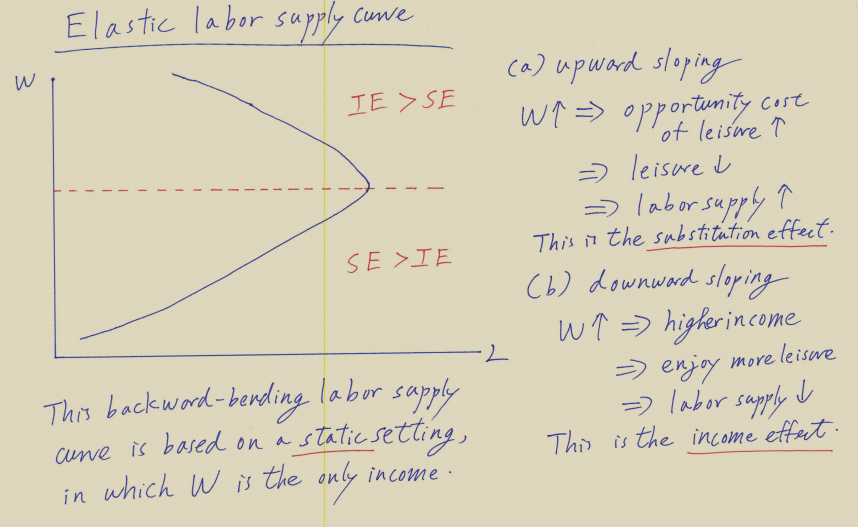 Elastic labor supply curve
W
IE > SE
SE > IE
L
This backward-bending labor supply
curve is based on a static setting,
in which W is the only income.
(a) upward sloping
W↑ ⇒ opportunity cost
of leisure ↑
⇒ leisure ↓
⇒ labor supply ↑
This is the substitution effect.
(b) downward sloping
W↑ ⇒ higher income
⇒ enjoy more leisure
⇒ labor supply ↓
This is the income effect.